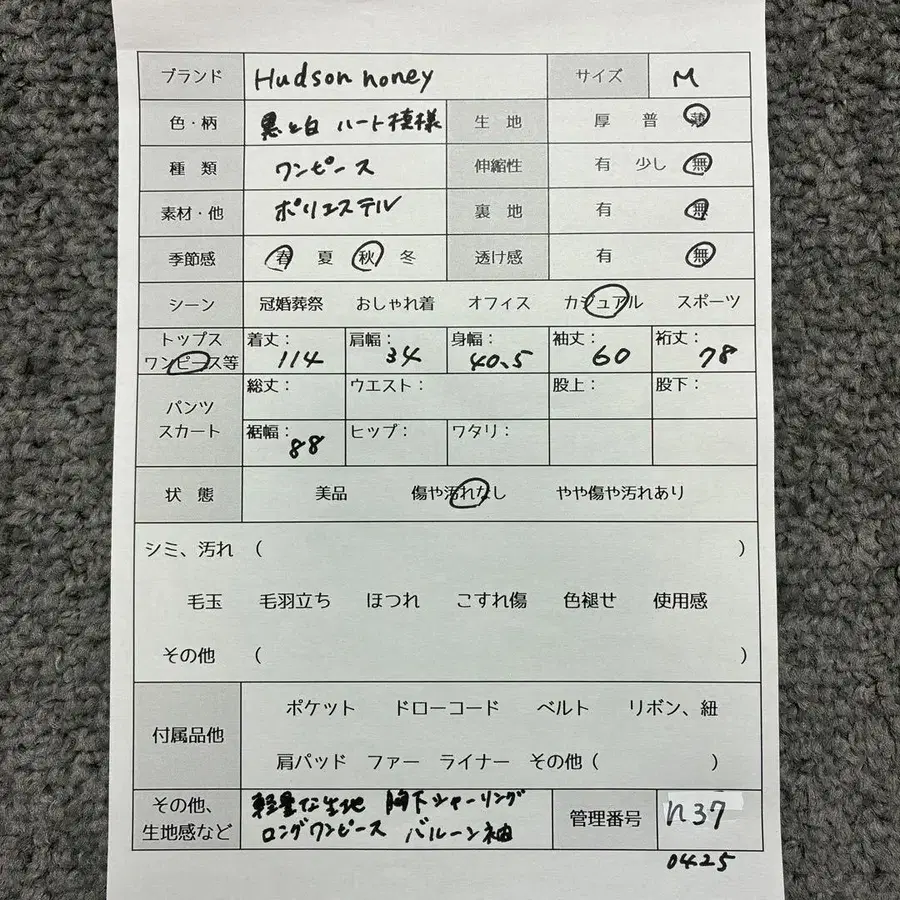 ブランド Hudson honey サイズ M
色・柄 黒と白 ハート模様 生地 厚 普 薄
種類 ワンピース 伸縮性 有 少し 無
素材・他 ポリエステル 裏地 有 無
季節感 春 夏 秋 冬 透け感 有 無
シーン 冠婚葬祭 おしゃれ着 オフィス カジュアル スポーツ
トップス 着丈： 肩幅： 身幅： 袖丈： 裄丈：
ワンピース等 114 34 40.5 60 78
総丈： ウエスト： 股上： 股下：
パンツ
スカート 裾幅： 88 ヒップ： ワタリ：
状態 美品 傷や汚れなし やや傷や汚れあり
シミ、汚れ （ ）
毛玉 毛羽立ち ほつれ こすれ傷 色褪せ 使用感
その他 （ ）
ポケット ドローコード ベルト リボン、紐
付属品他
肩パッド ファー ライナー その他（ ）
その他、 軽量な生地 胸下シャーリング
生地感など ロングワンピース バルーン袖 管理番号 n37
0425